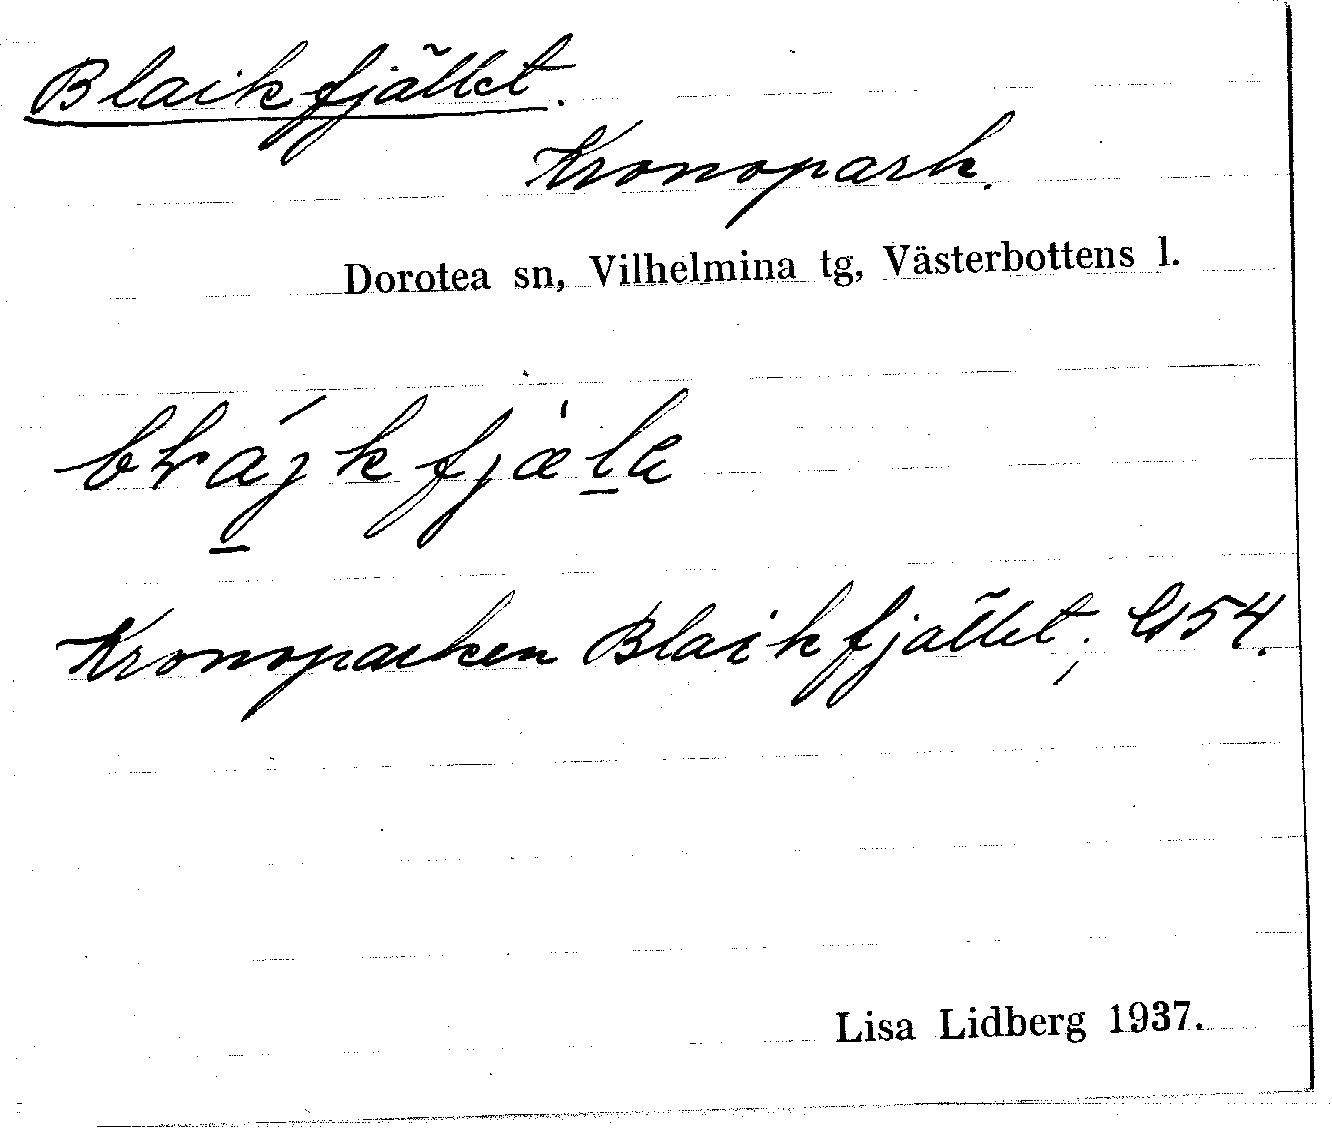 Blaikfjället.
Kronopark.
Dorotea sn, Vilhelmina tg, Västerbottens l.
Kronoparken Blaikfjället; G54.
Lisa Lidberg 1937.